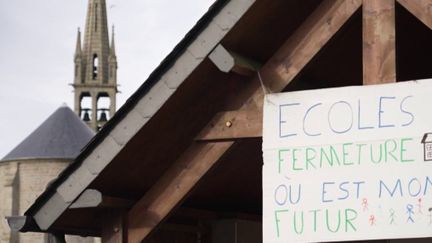 ECOLES
FERMETURE
OÙ EST MON
FUTUR